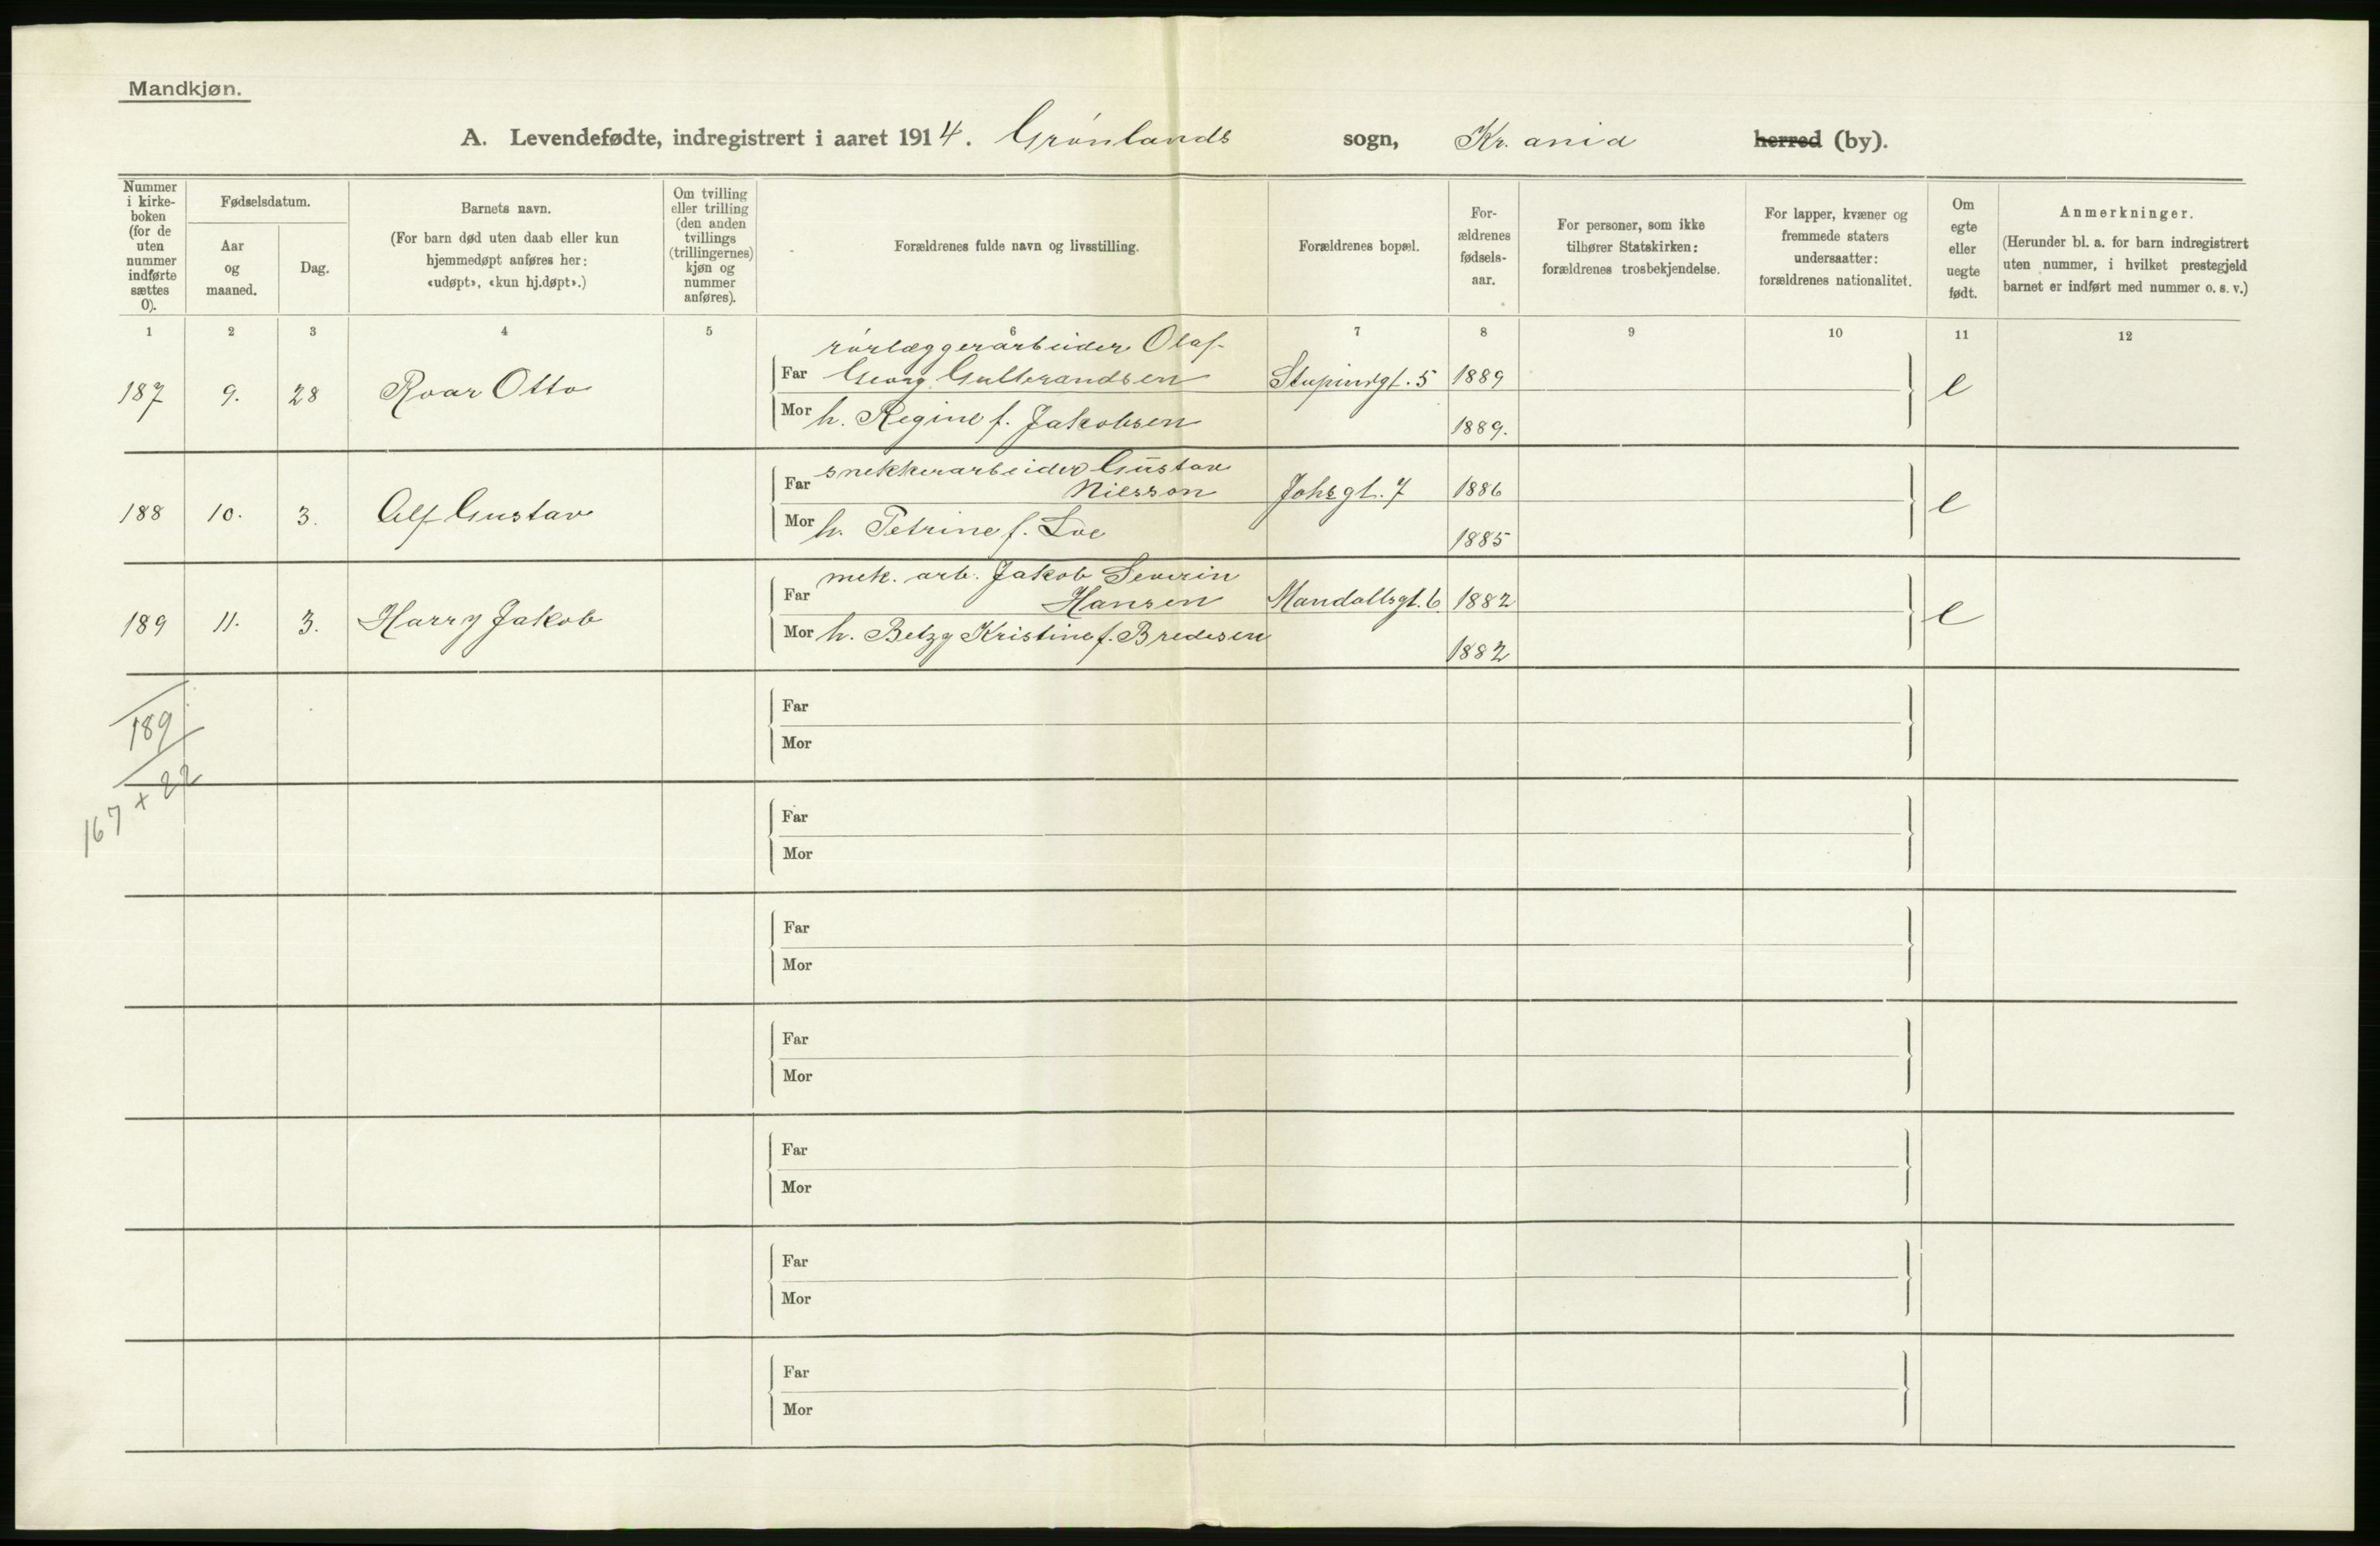 Mandkjøn.
A. Levendefødte, indregistrert i aaret 1914. Grønlands sogn, Kr.ania herred (by).
Nummer i kirkeboken (for de uten nummer indførte sættes 0).
Fødselsdatum.
Aar og maaned.
Dag.
Barnets navn.
(For barn død uten daab eller kun
hjemmedøpt anføres her:
«udøpt», «kun hj.døpt».)
Om tvilling
eller trilling
(den anden
tvillings
(trillingernes)
kjøn og
nummer
anføres).
Forældrenes fulde navn og livsstilling.
Forældrenes bopæl.
For-
ældrenes
fødsels-
aar.
For personer, som ikke
tilhører Statskirken:
forældrenes trosbekjendelse.
For lapper, kvæner og
fremmede staters
undersaatter:
forældrenes nationalitet.
Om
egte
eller
uegte
født.
Anmerkninger.
(Herunder bl. a. for barn indregistrert
uten nummer, i hvilket prestegjeld
barnet er indført med nummer o. s. v.)
1 2 3 4 5 6 7 8 9 10 11 12
rørlæggerarbeider Olaf
187 9. 28 Roar Otto Far Georg Gulbrandsen 5 1889 e
Mor h. Regine f. Jakobsen 1889.
snekkerarbeider Gustav
188 10. 3. Alf Gustav Far Nilsson Johsgt. 7 1886 e
Mor h. Petrine f. Loe 1885
mek. arb. Jakob Severin
189 11. 3. Harry Jakob Far Hansen Mandallsgt. 6. 1882 e
Mor h. Betzy Kristine f. Bredesen 1882
Far
189
Mor
167 + 22
Far
Mor
Far
Mor
Far
Mor
Far
Mor
Far
Mor
Far
Mor